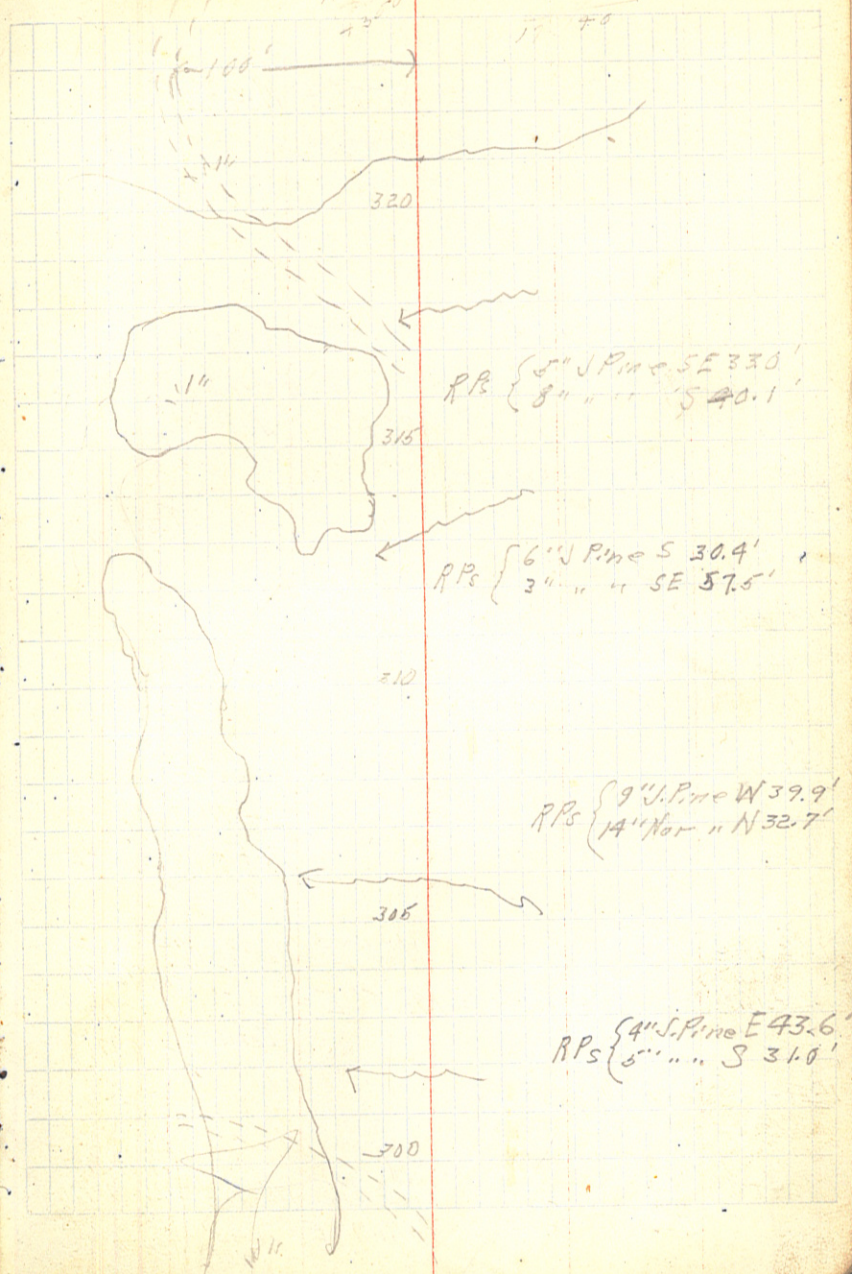 100'
1"
320
RPs { 5" J Pine SE 33.0'
8" " " S 40.1'
1"
315
RPs { 6" J Pine S 30.4'
3" " " SE 57.5'
310
RPs { 9" J. Pine W 39.9'
14" Nor " N 32.7'
305
RPs { 4" J. Pine E 43.6'
5" " " S 31.0'
300